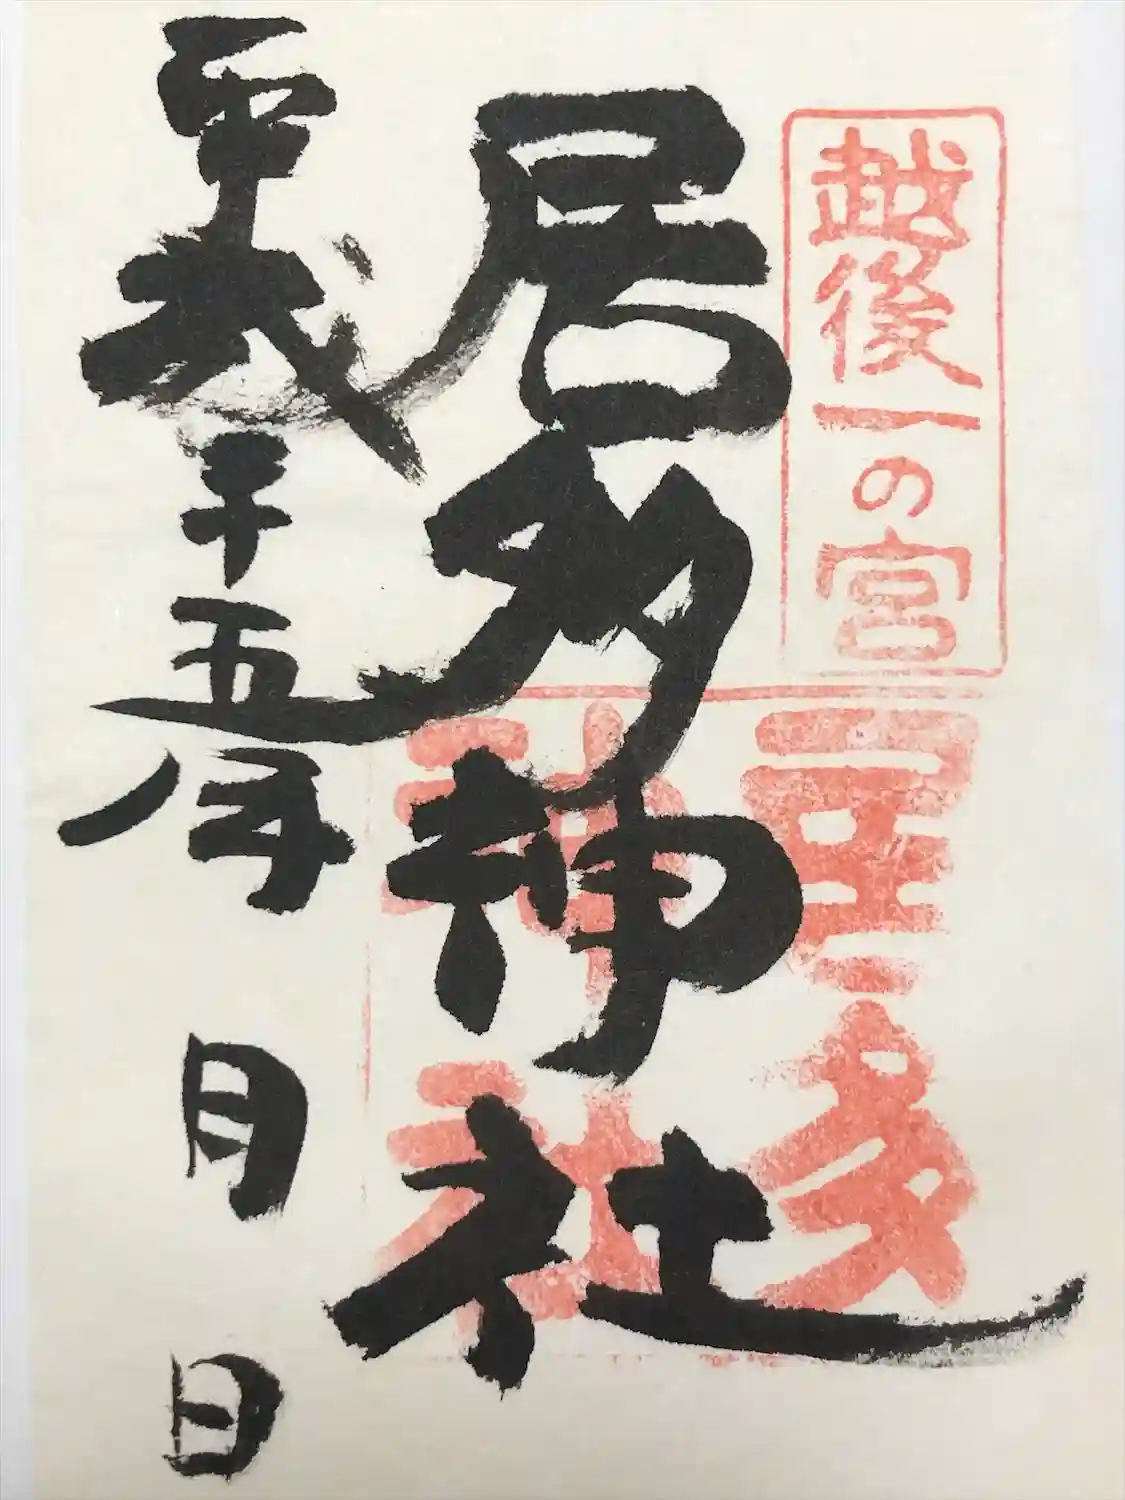 越後一の宮
居多神社
居多
神社
平成二十五年
月
日